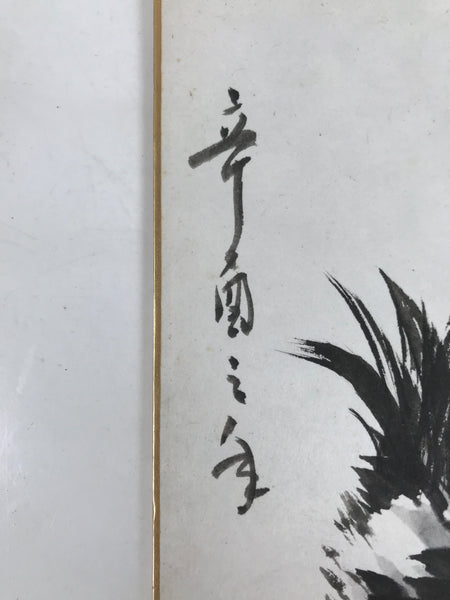 辛酉之年